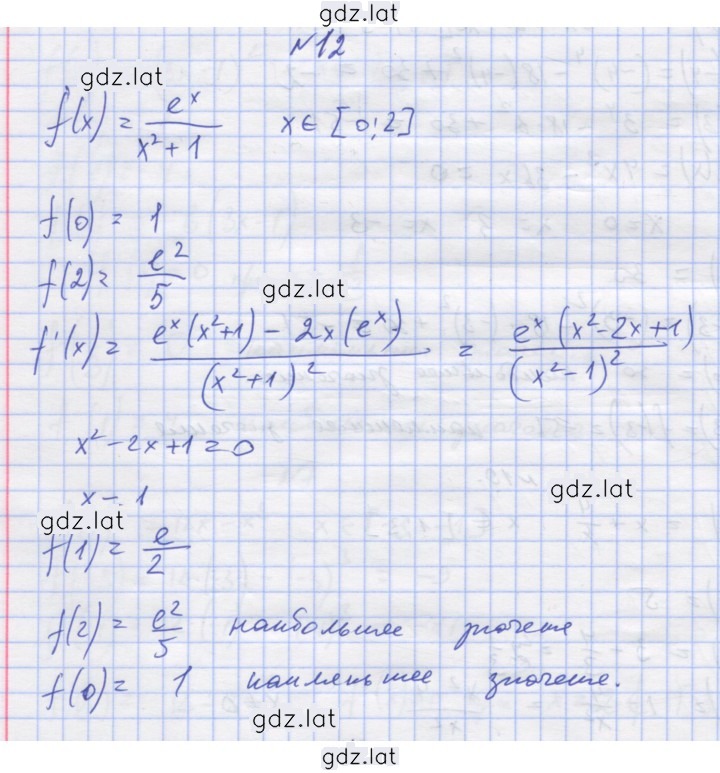 gdz.lat
№12
gdz.lat
f(x) = e^x / (x² + 1)   x ∈ [0; 2]
f(0) = 1
f(2) = e² / 5
gdz.lat
f'(x) = (e^x (x²+1) - 2x (e^x)) / (x²+1)² = e^x (x² - 2x + 1) / (x² - 1)²
x² - 2x + 1 = 0
gdz.lat
x = 1
gdz.lat
f(1) = e / 2
f(2) = e² / 5 наибольшее значение
f(0) = 1 наименьшее значение.
gdz.lat
gdz.lat